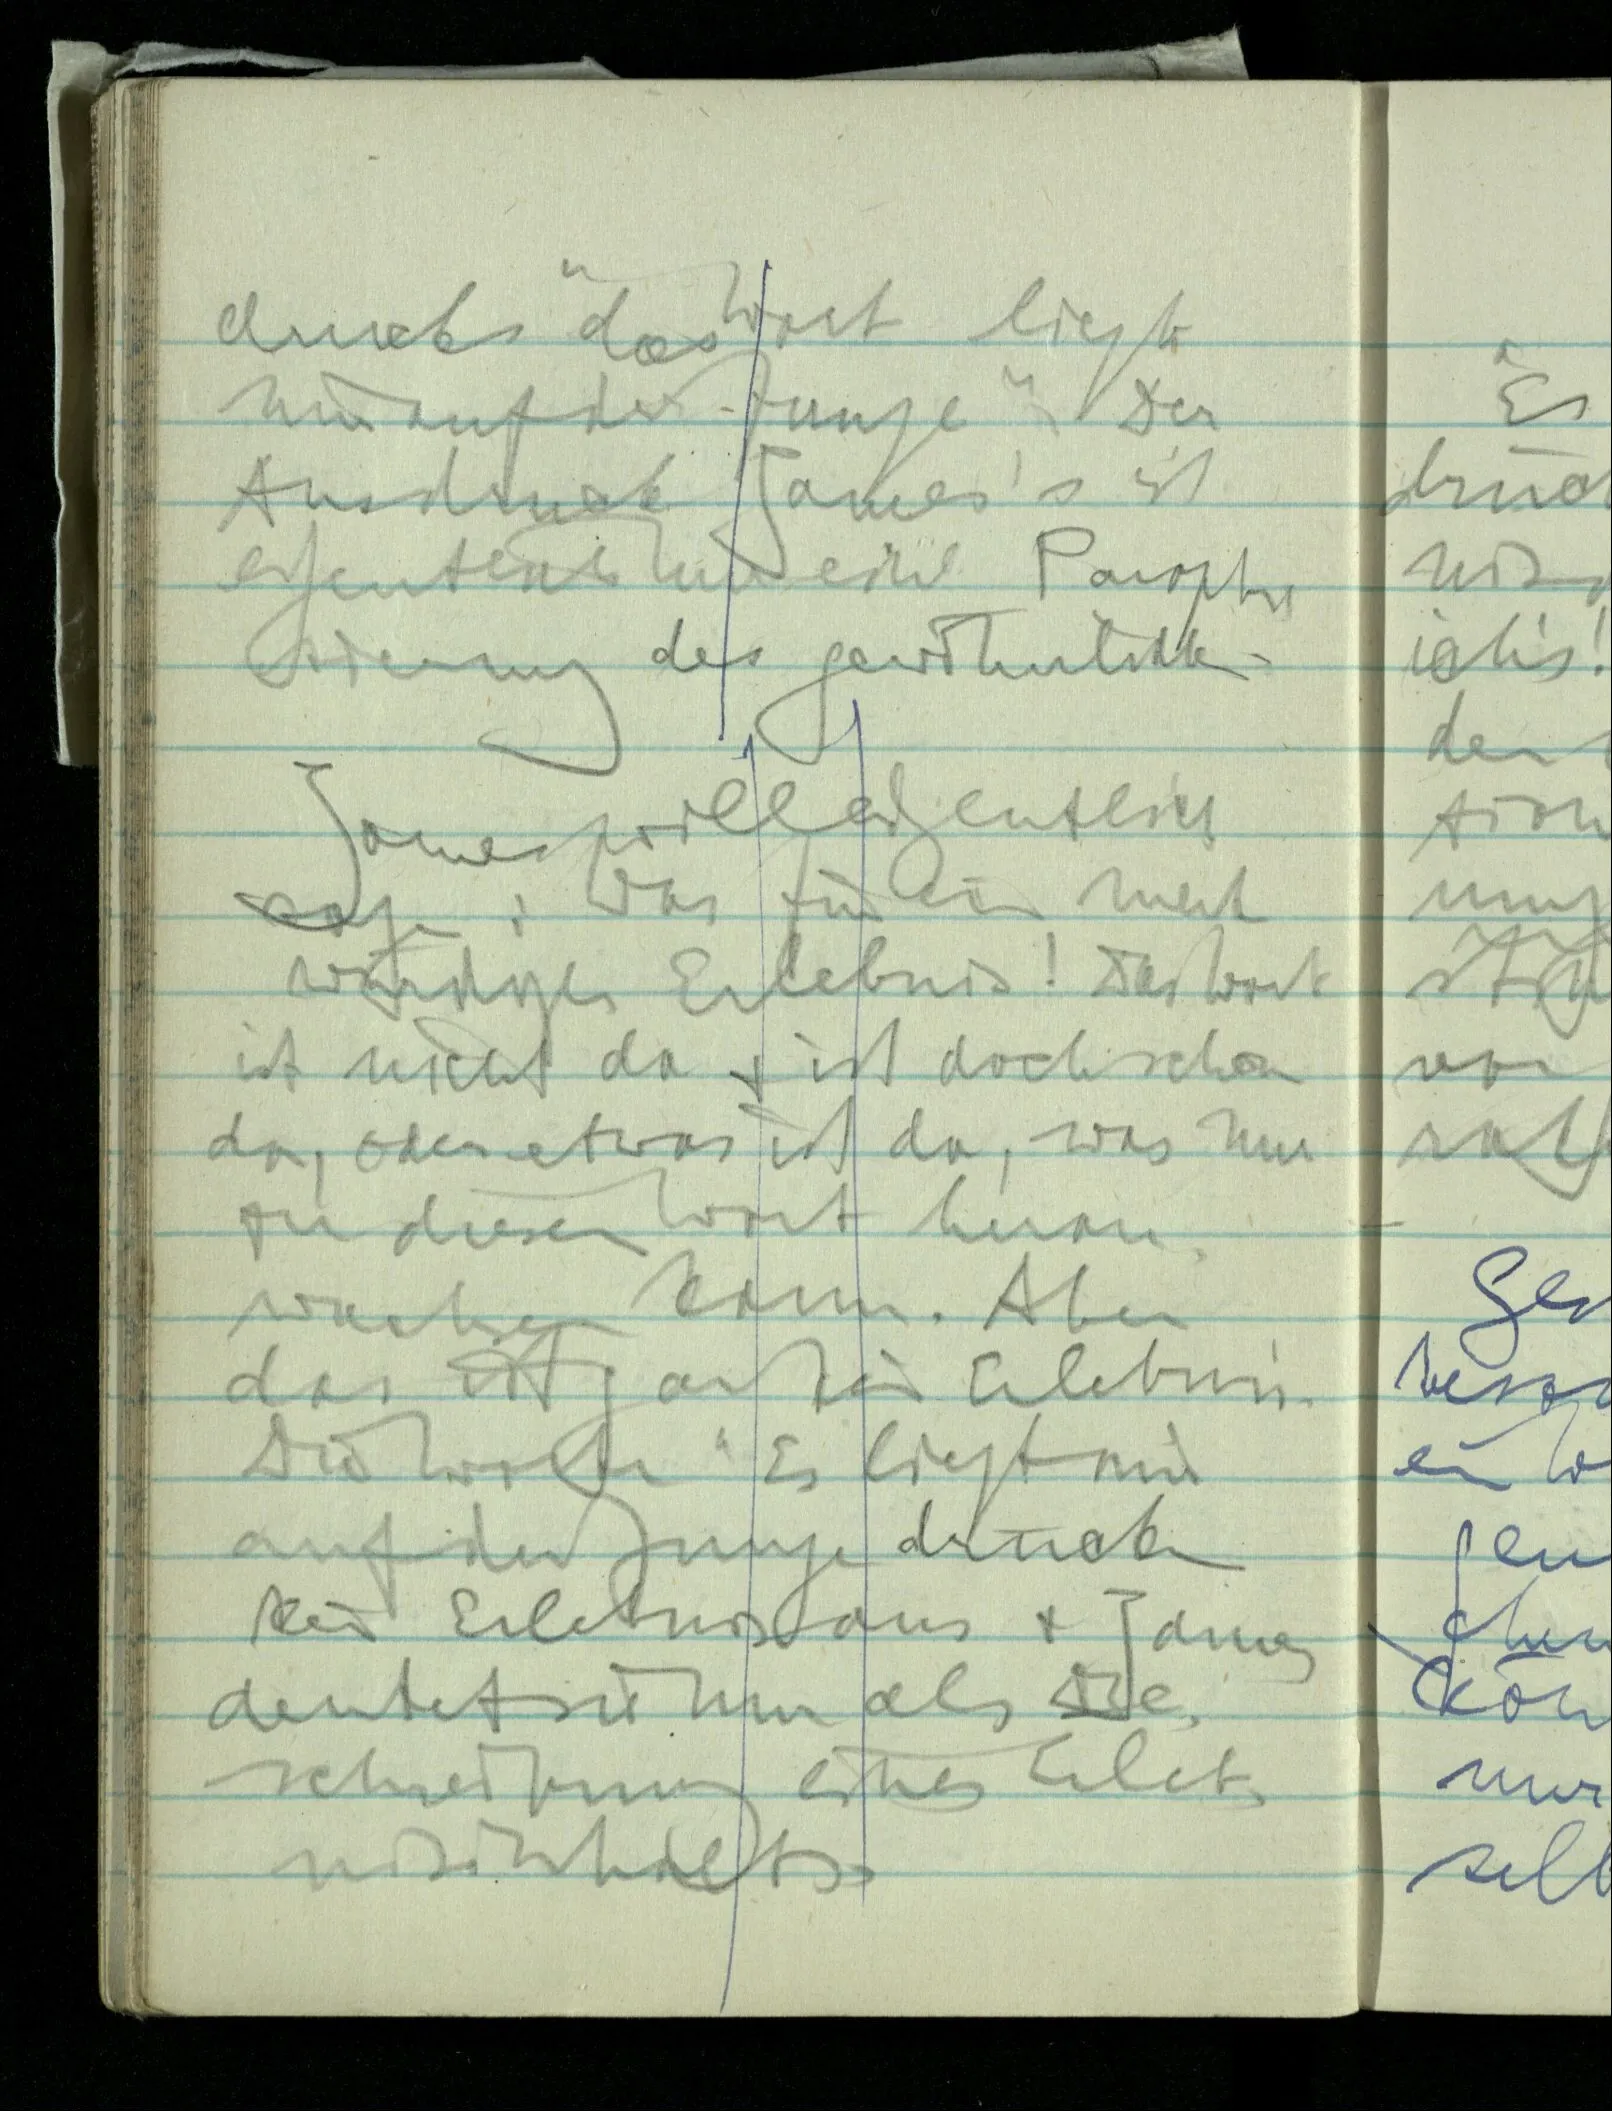 drucks "das Wort liegt
mir auf der Zunge". Der
Ausdruck James's ist
eigentlich nur eine Paraphra
sierung des gewöhnlichen.
James will eigentlich
sagen: Was für ein merk
würdiges Erlebnis! Das Wort
ist nicht da & ist doch schon
da, oder etwas ist da, was nur
zu diesem Wort heran-
wachsen kann. Aber
das ist gar kein Erlebnis.
Die Worte "Es liegt mir
auf der Zunge drücken
kein Erlebnis aus & James
deutet sie nur als Be-
schreibung eines Erleb
nisinhalts.
"Es
drück
nis
ich's!
den
tion
ung
von
Gen
beso
ein W
gen
kön
nur
selb